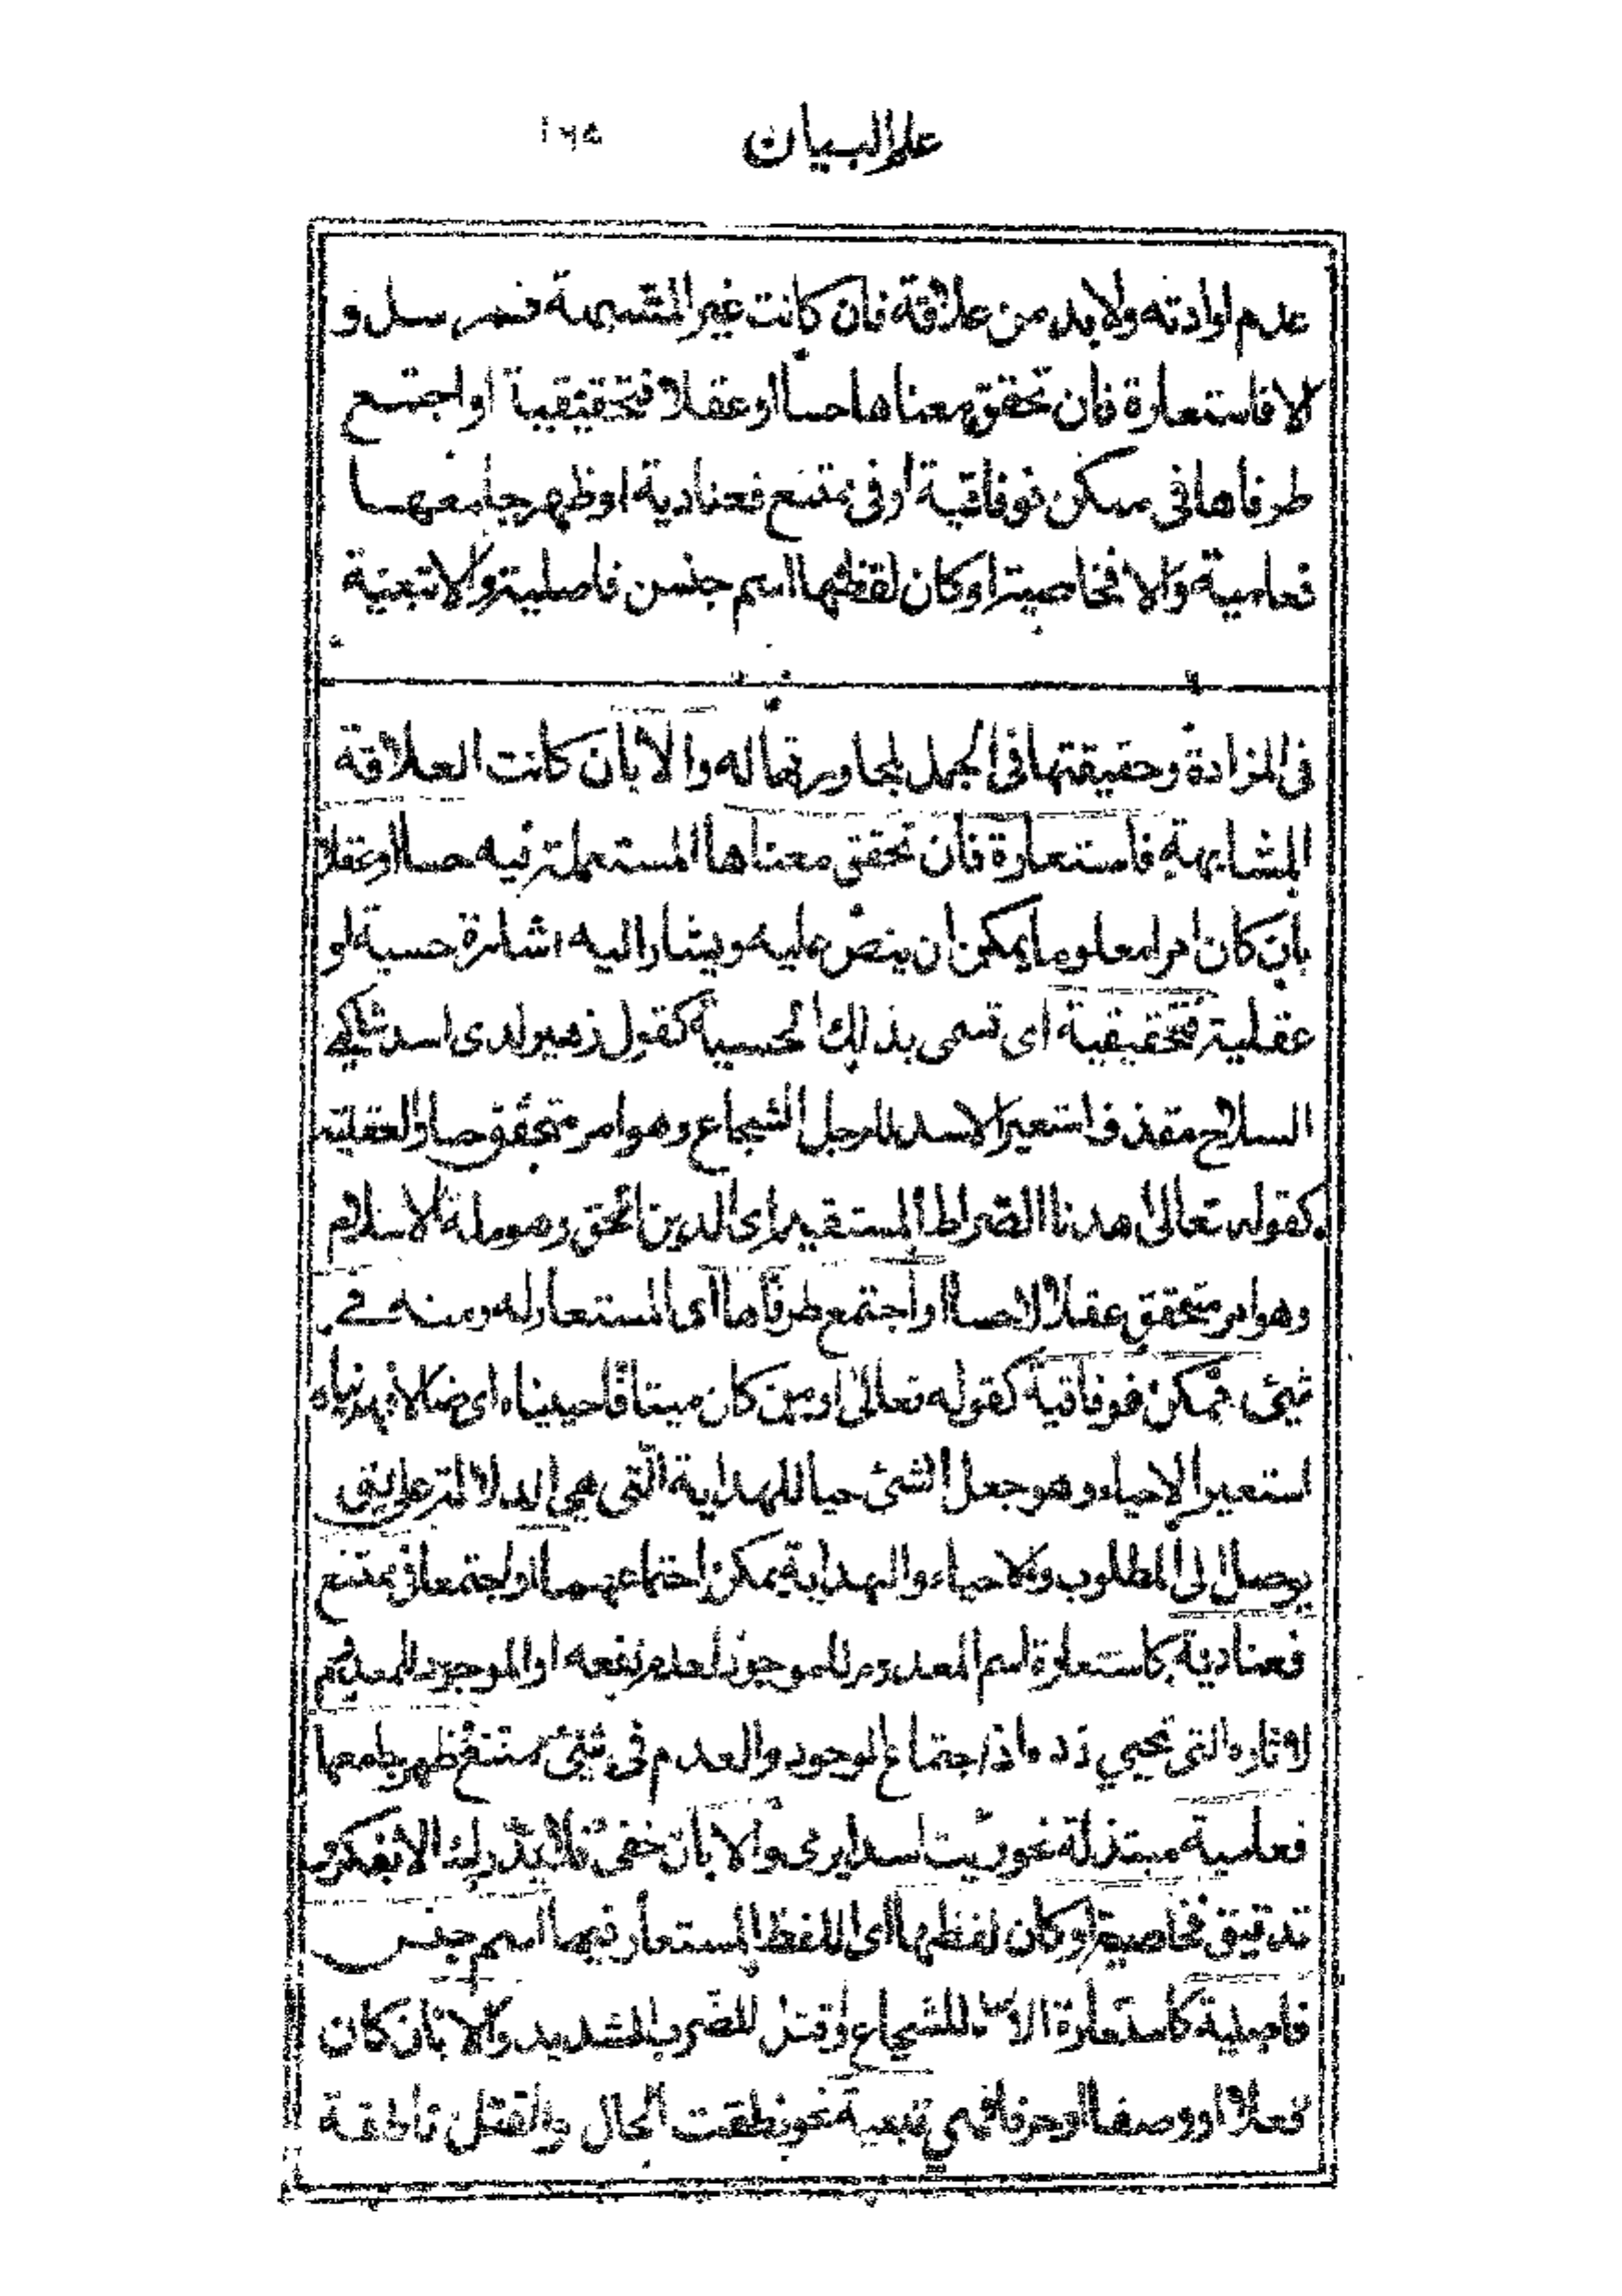 علم البيان ١٦٥
عدم ارادته ولا بد من علاقة فان كانت غير المشبهة فمرسل و
الا فاستعارة فان تحقق معناها حسا او عقلا فتحقيقية او اجتمع
طرفاها فى ممكن فوفاقية او فى ممتنع فعنادية او ظهر جامعها
فعامية والا فخاصية او كان لفظها اسم جنس فاصلية والا تبعية
فى المزادة وحقيقتها فى الجمل لمجاورتها له والا بان كانت العلاقة
المشابهة فاستعارة فان تحقق معناها المستعملة فيه حسا او عقلا
بان كان امرا معلوما يمكن ان ينص عليه ويشار اليه اشارة حسية او
عقلية فتحقيقية اى تسمى بذلك الحسية كقول زهير لدى اسد شاكى
السلاح مقذف استعير الاسد للرجل الشجاع وهو امر متحقق حسا والعقلية
كقوله تعالى اهدنا الصراط المستقيم اى الدين الحق وهو ملة الاسلام
وهو امر متحقق عقلا لا حسا او اجتمع طرفاها اى المستعار له ومنه فى
شئ ممكن فوفاقية كقوله تعالى او من كان ميتا فاحييناه اى ضالا فهديناه
استعير الاحياء وهو جعل الشئ حيا للهداية التى هى الدلالة على طريق
يوصل الى المطلوب والاحياء والهداية يمكن اجتماعهما او اجتمعا فى ممتنع
فعنادية كاستعارة اسم المعدوم للموجود لعدم نفعه او الموجود للمعدوم
لاثاره التى تحيي ذكره اذ اجتماع الوجود والعدم فى شئ ممتنع او ظهر جامعها
فعامية مبتذلة نحو رأيت اسدا يرمى والا بان خفى فلا يدرك الا بفكر و
تدقيق فخاصية او كان لفظها اى اللفظ المستعار فيها اسم جنس
فاصلية كاستعارة الاسد للشجاع وقتل للضرب الشديد والا بان كان
فعلا او وصفا او حرفا فهى تبعية نحو نطقت الحال والقتل ناطقة